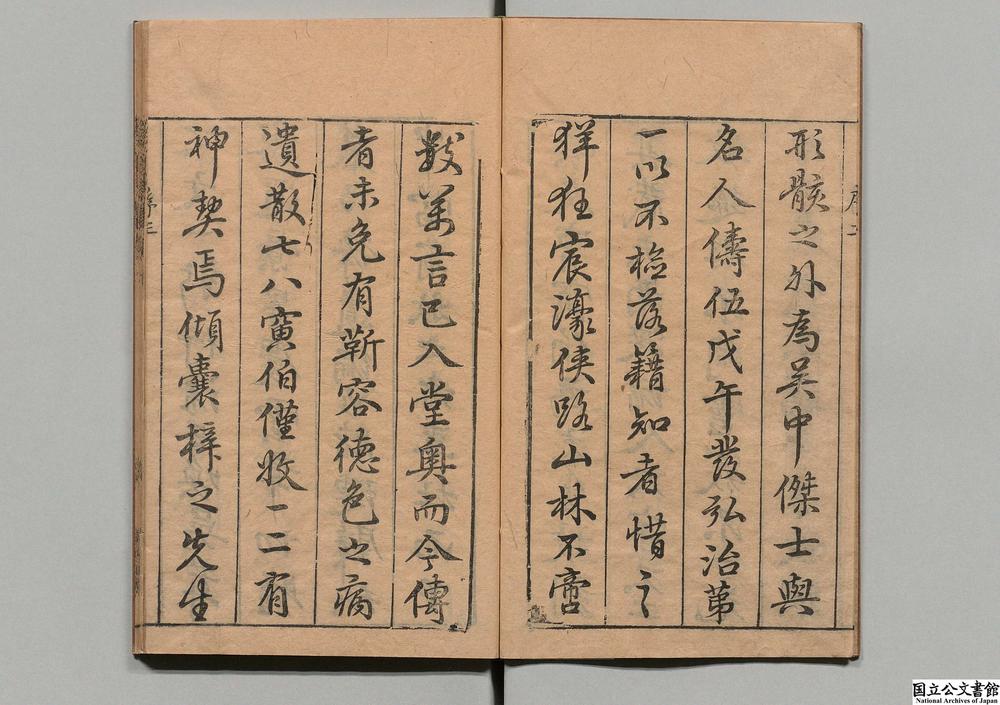 形骸之外為吳中傑士與
名人儔伍戊午發弘治第
一以不檢落籍知者惜之
佯狂宸濠俠路山林不啻
數萬言已入堂奧而今傳
者未免有靳容德色之病
遺散七八寅伯僅收一二有
神契焉傾囊梓之先生
序二
序三
国立公文書館
National Archives of Japan